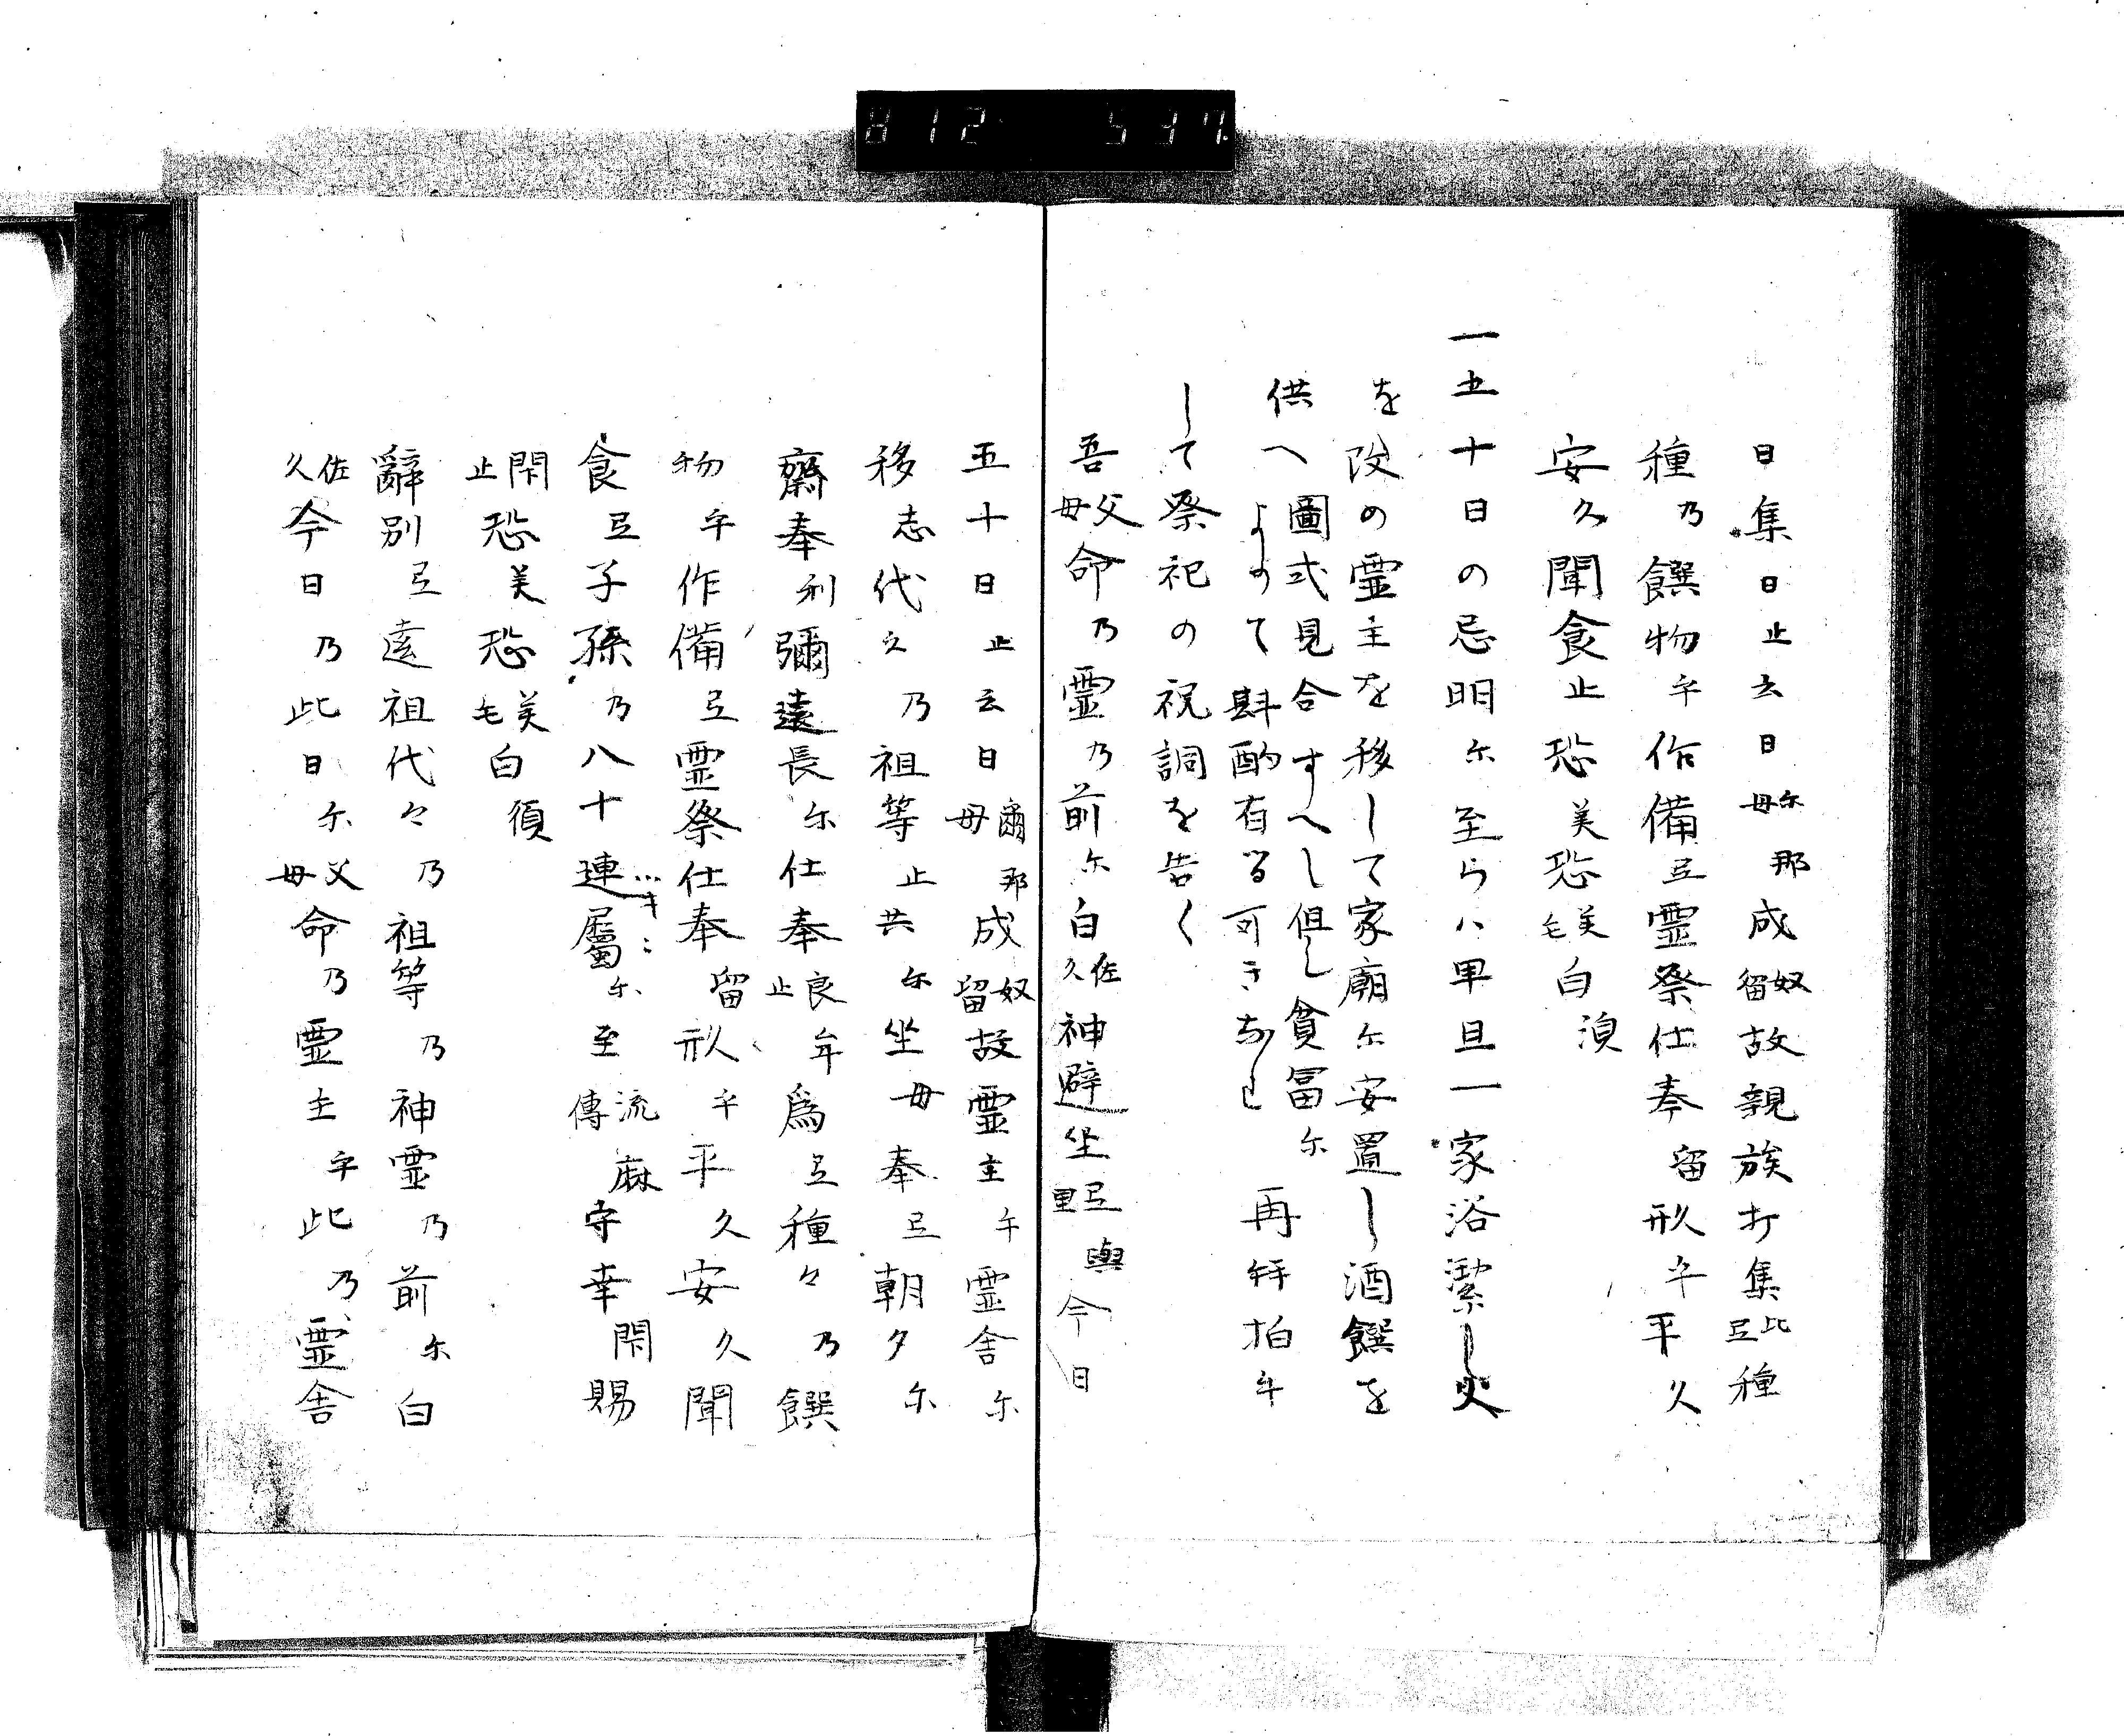 812 537
日集日止云日尓毋那成奴留故親族打集比弖種
種乃饌物乎作備弖霊祭仕奉留形乎平久
安久聞食止恐美恐美毛白湏
一五十日の忌明尓至らハ早旦一家浴潔し火
を改め霊主を移して家廟尓安置し酒饌を
供へ圖式見合すへし但し貧冨尓よりて斟酌有る可きなり再拝拍手
して祭祀の祝詞を告く
吾父母命乃霊乃前尓白佐久神避坐弖里與今日
五十日止云日爾毋那成奴留故霊主乎霊舎尓
移志代々乃祖等止共尓坐毋奉弖朝夕尓
齋奉利彌遠長尓仕奉良牟止為弖種々乃饌
物乎作備弖霊祭仕奉留形乎平久安久聞
食弖子孫乃八十連属尓至流麻傳守幸閇賜
閇止恐美恐美毛白須
辭別弖遠祖代々乃祖等乃神霊乃前尓白
佐久今日乃此日尓父母命乃霊主乎此乃霊舎